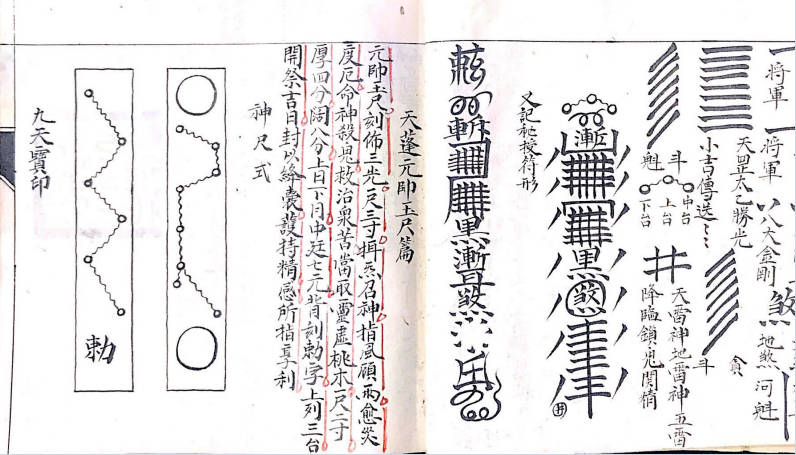 將軍
將軍 八大金剛 煞 地煞河魁
天罡太乙勝光
小吉傳送
貪
斗
斗
魁
中台
上台
下台
天雷神地雷神五雷
降臨鎖鬼関精
又記秘授符形
漸
黑
煞
斬
黑
漸
煞
天蓬元帥玉尺篇
元帥玉尺刻佈三光一尺三寸揖炁召神指風願雨愈災
度厄命神殺鬼救治衆苦當取靈虛桃木一尺二寸
厚四分闊八分上日下月中廷七元背刻勅字上列三台
開祭吉日封以絳囊護持精感所指享利
神尺式
勅
九天寶印